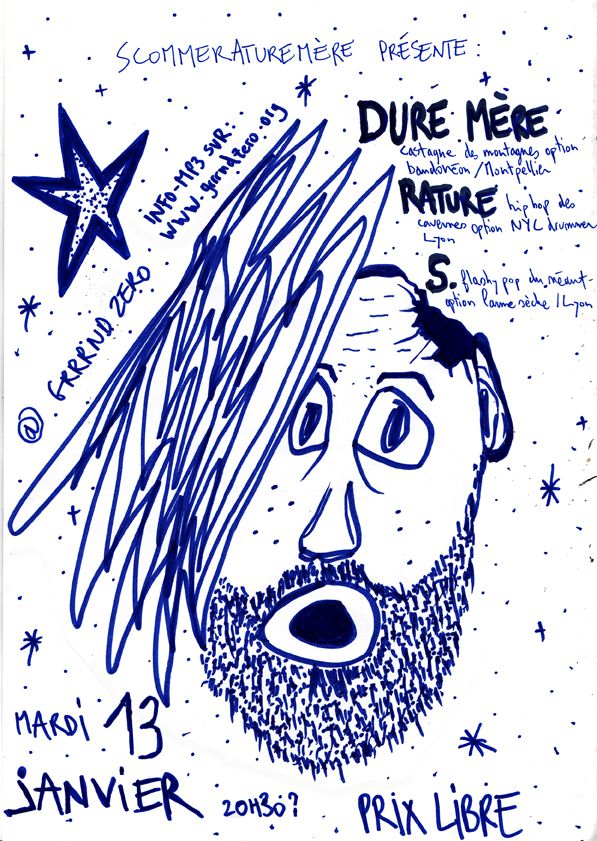 SCOMMERATUREMÈRE PRÉSENTE :
DURE MÈRE
castagne des montagnes option
bandonéon / Montpellier
RATURE hip hop des
cavernes option NYC drummer
Lyon
S. flashy pop du néant-
option larme sèche / Lyon
INFO-MP3 SUR :
www.grrrndzero.org
@ GRRRIND ZERO
MARDI 13
JANVIER 20H30?
PRIX LIBRE